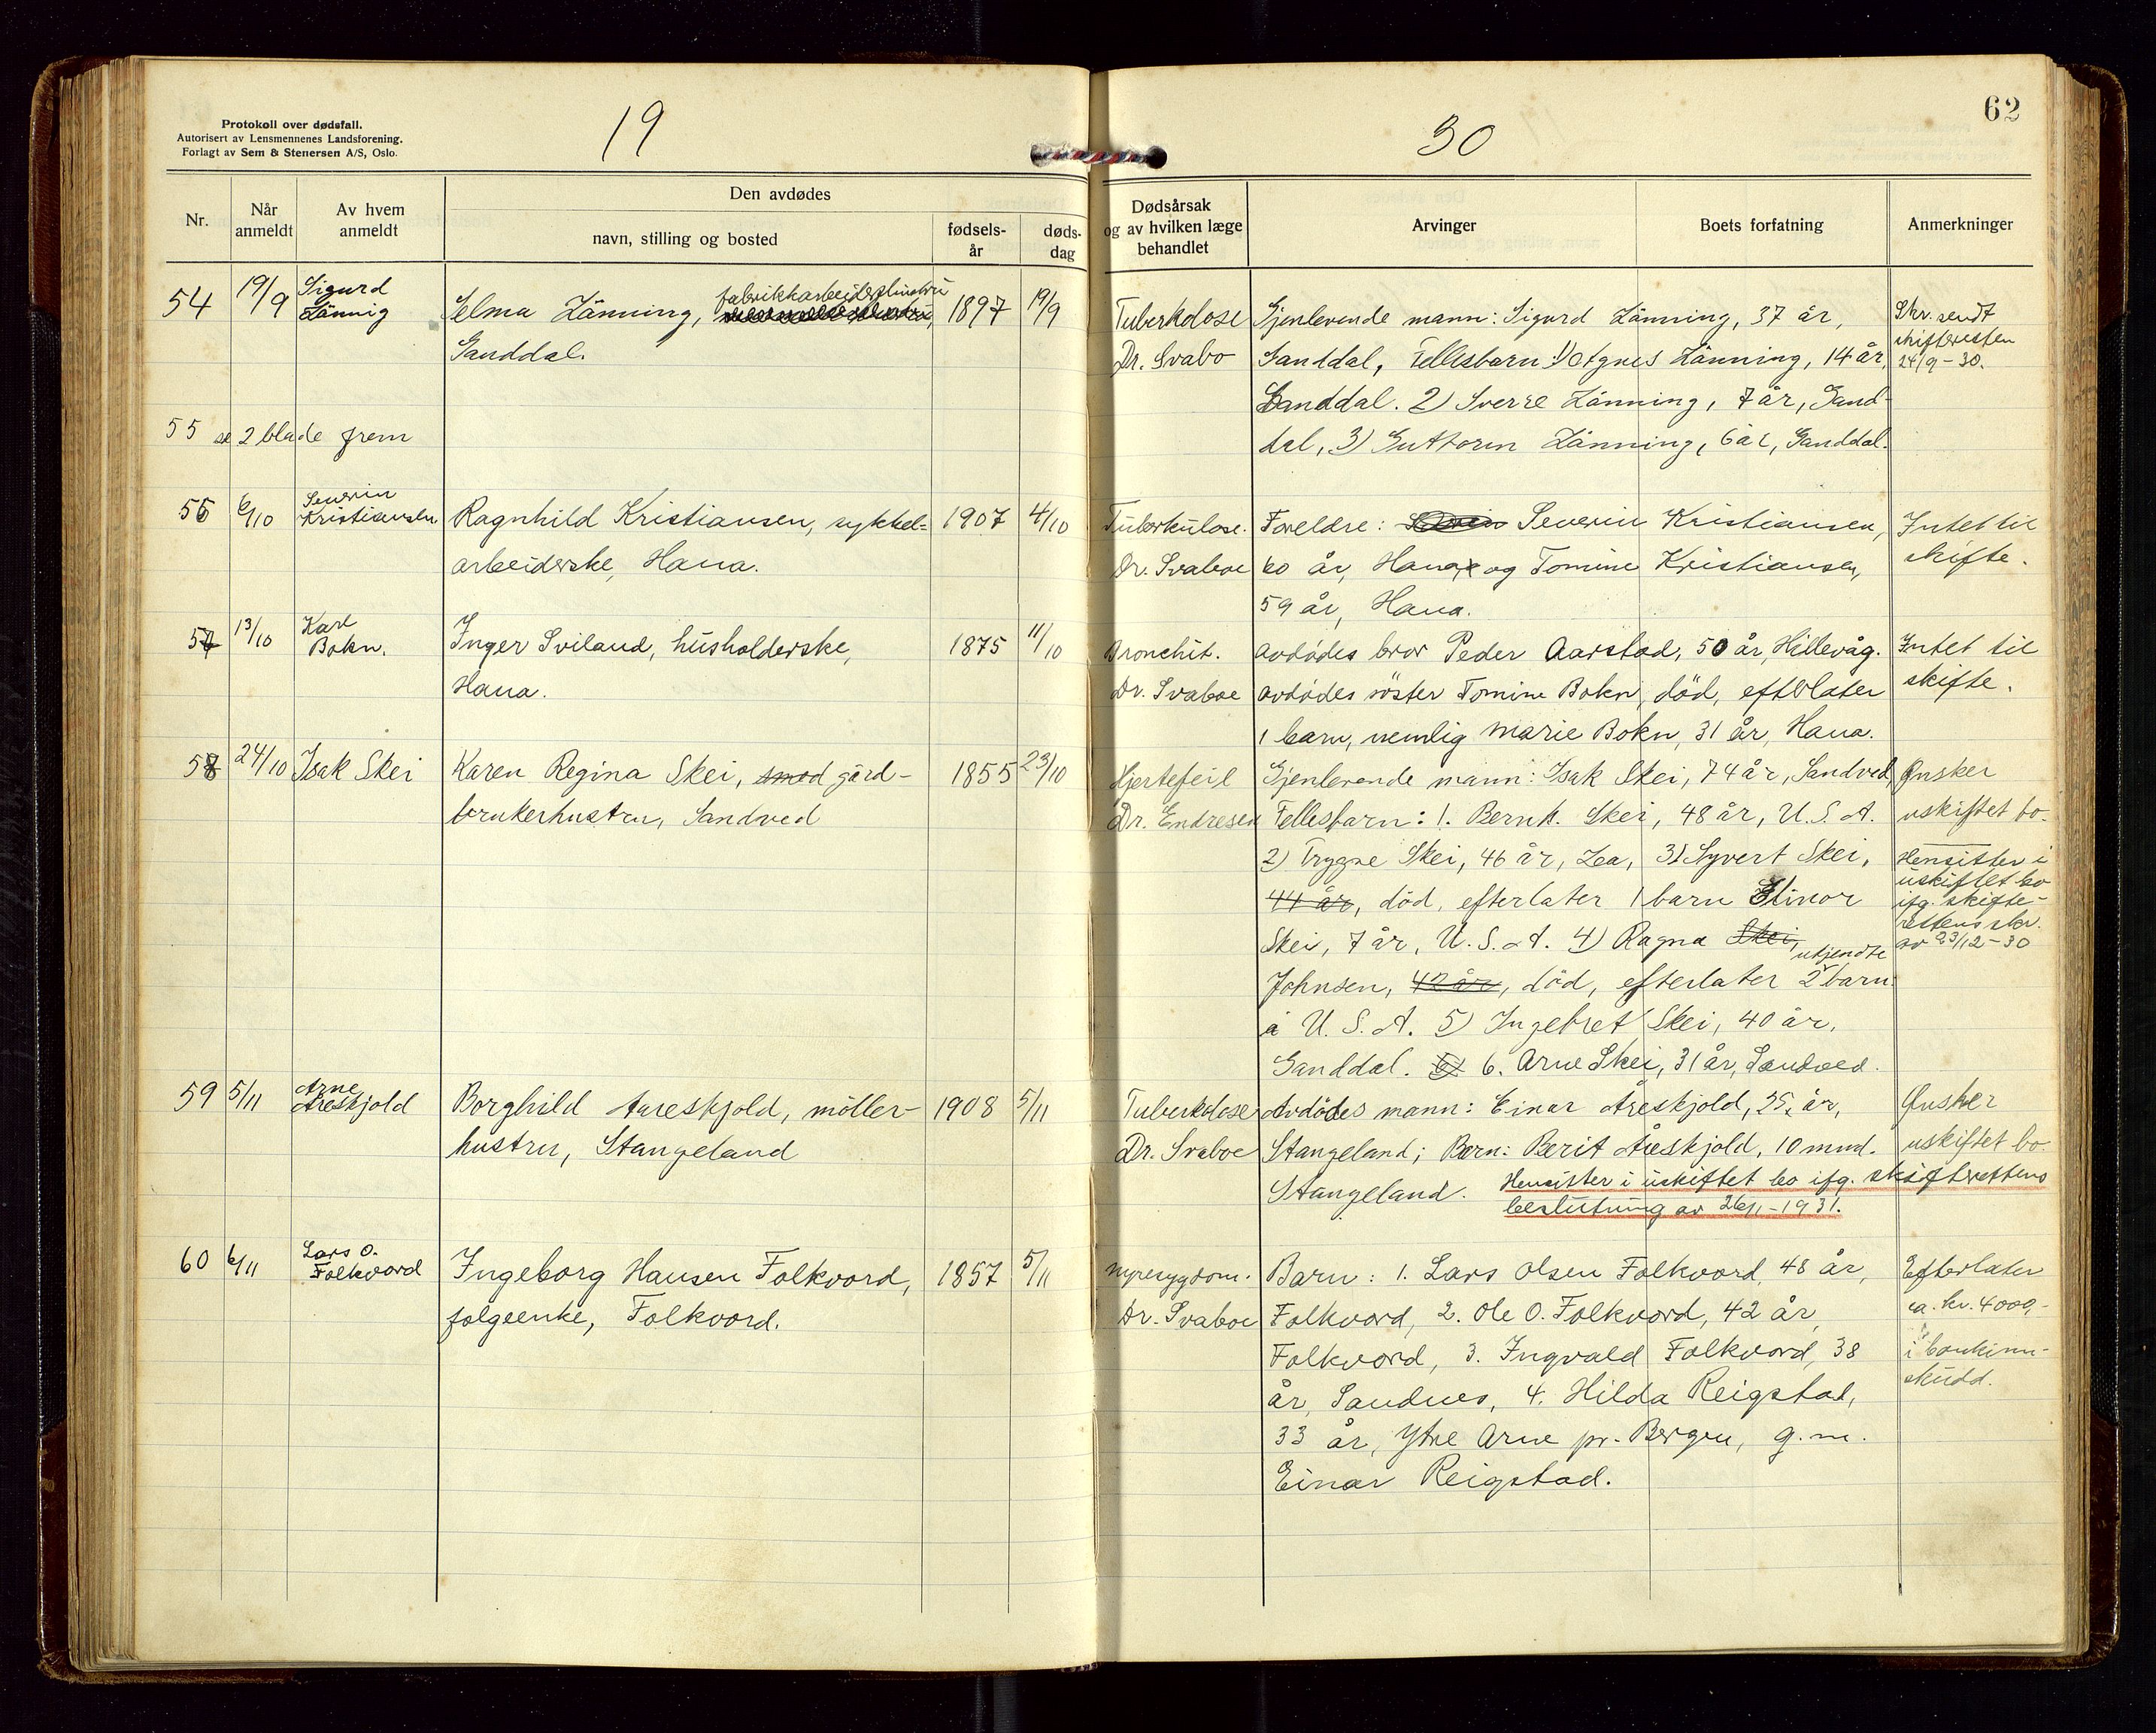 Protokoll over dødsfall.
Autorisert av Lensmennenes Landsforening.
Forlagt av Sem & Stenersen A/S, Oslo.
19
30
62
Nr.
Når anmeldt
Av hvem anmeldt
Den avdødes
navn, stilling og bosted
fødselsår
dødsdag
Dødsårsak og av hvilken læge behandlet
Arvinger
Boets forfatning
Anmerkninger
54 19/9 Sigurd Länning
Selma Länning, fabrikkarbeiderhustru 1897 19/9
Ganddal.
Tuberkolose
Dr. Svabo
Gjenlevende mann: Sigurd Länning, 37 år,
Ganddal, Fellesbarn 1) Agnes Länning, 14 år,
Ganddal. 2) Sverre Länning, 7 år, Gand-
dal, 3) Guttorm Länning, 6 år, Ganddal.
Skr. sendt
skifteretten
24/9-30.
55 se 2 blade frem
56 6/10 Severin Kristiansen
Ragnhild Kristiansen, sykkel- 1907 4/10
arbeiderske, Hana.
Tüberkulose.
Dr. Svaboe
Foreldre: Severin Kristiansen,
60 år, Hana og Tomine Kristiansen,
59 år, Hana.
Intet til
skifte.
57 13/10 Karl Bokn.
Inger Sviland, hüsholderske, 1875 11/10
Hana.
Bronchit.
Dr. Svaboe
avdödes bror Peder Aarstad, 50 år, Hillevåg.
avdödes söster Tomine Bokn, död, efterlater
1 barn, nemlig Marie Bokn, 31 år, Hana.
Intet til
skifte.
58 24/10 Isak Skei
Karen Regina Skei, gård- 1855 23/10
brukerhustru, Sandved
Hjertefeil
Dr. Endresen
Gjenlevende mann: Isak Skei, 74 år, Sandved
Fellesbarn: 1. Bernh. Skei, 48 år, U.S.A.
2) Trygve Skei, 46 år, Lea, 3) Syvert Skei,
44 år, död, efterlater 1 barn Elinor
Skei, 7 år, U.S.A. 4) Ragna Skei,
Johnsen, 42 år, död, efterlater 2 ukjendte barn
i U.S.A. 5) Ingebret Skei, 40 år,
Ganddal. 6. Arne Skei, 31 år, Sandved.
Ønsker
uskiftet bo.
Hensitter i
üskiftet bo
ifg. skifte-
rettens skr.
av 23/12-30
59 5/11 Arne Areskjold
Borghild Aareskjold, möller- 1908 5/11
hustru, Stangeland
Tuberkolose
Dr. Svaboe
Avdödes mann: Einar Åreskjold, 25 år,
Stangeland; Barn: Berit Åreskjold, 10 mnd.
Stangeland.
Ønsker
uskiftet bo.
Hensitter i üskiftet bo ifg. skifterettens
beslutning av 26/1-1931.
60 6/11 Lars O. Folkvord
Ingeborg Hansen Folkvord, 1857 5/11
folgeenke, Folkvord.
Nyresygdom.
Dr. Svaboe
Barn: 1. Lars Olsen Folkvord, 48 år,
Folkvord, 2. Ole O. Folkvord, 42 år,
Folkvord, 3. Ingvald Folkvord, 38
år, Sandnes, 4. Hilda Reigstad,
33 år, Ytre Arne pr. Bergen, g.m.
Einar Reigstad.
Efterlater
ca. kr. 4000,-
i bankinn-
skudd.